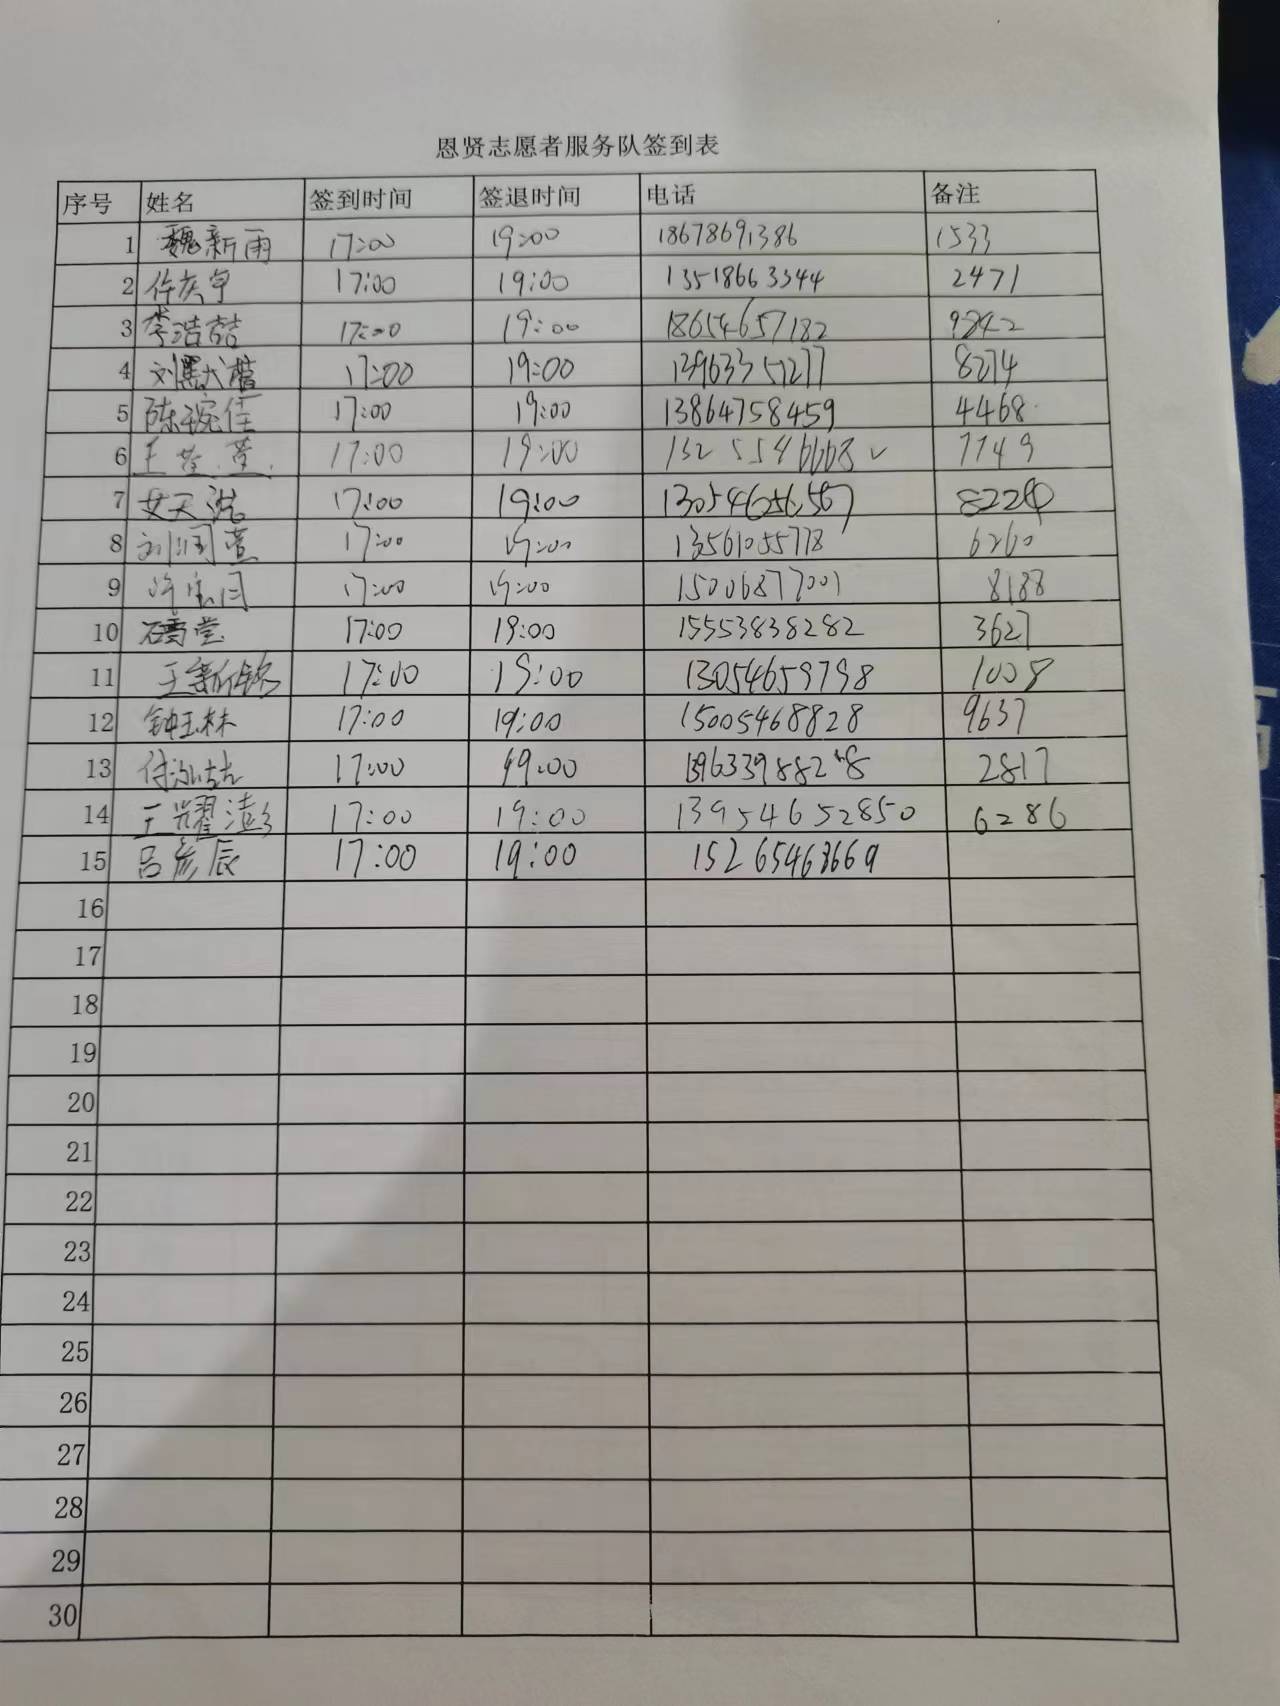 恩贤志愿者服务队签到表
序号 姓名 签到时间 签退时间 电话 备注
1 魏新雨 17:00 19:00 18678691386 1533
2 17:00 19:00 13518663344 2471
3 李浩喆 17:00 19:00 18654657182 9242
4 刘默涵 17:00 19:00 13963357277 8274
5 陈婉佳 17:00 19:00 13864758459 4468
6 王萱萱 17:00 19:00 13255546668 ✓ 7749
7 天浩 17:00 19:00 13054656567 8220
8 刘润萱 17:00 19:00 13561055778 6260
9 许宝月 17:00 19:00 15006877001 8188
10 石雪莹 17:00 19:00 15553838282 3627
11 王新铭 17:00 19:00 13054659798 1008
12 钟玉林 17:00 19:00 15005468828 9637
13 17:00 19:00 2817
14 王耀澎 17:00 19:00 13954652850 6286
15 吕彦辰 17:00 19:00 15265463669
16
17
18
19
20
21
22
23
24
25
26
27
28
29
30